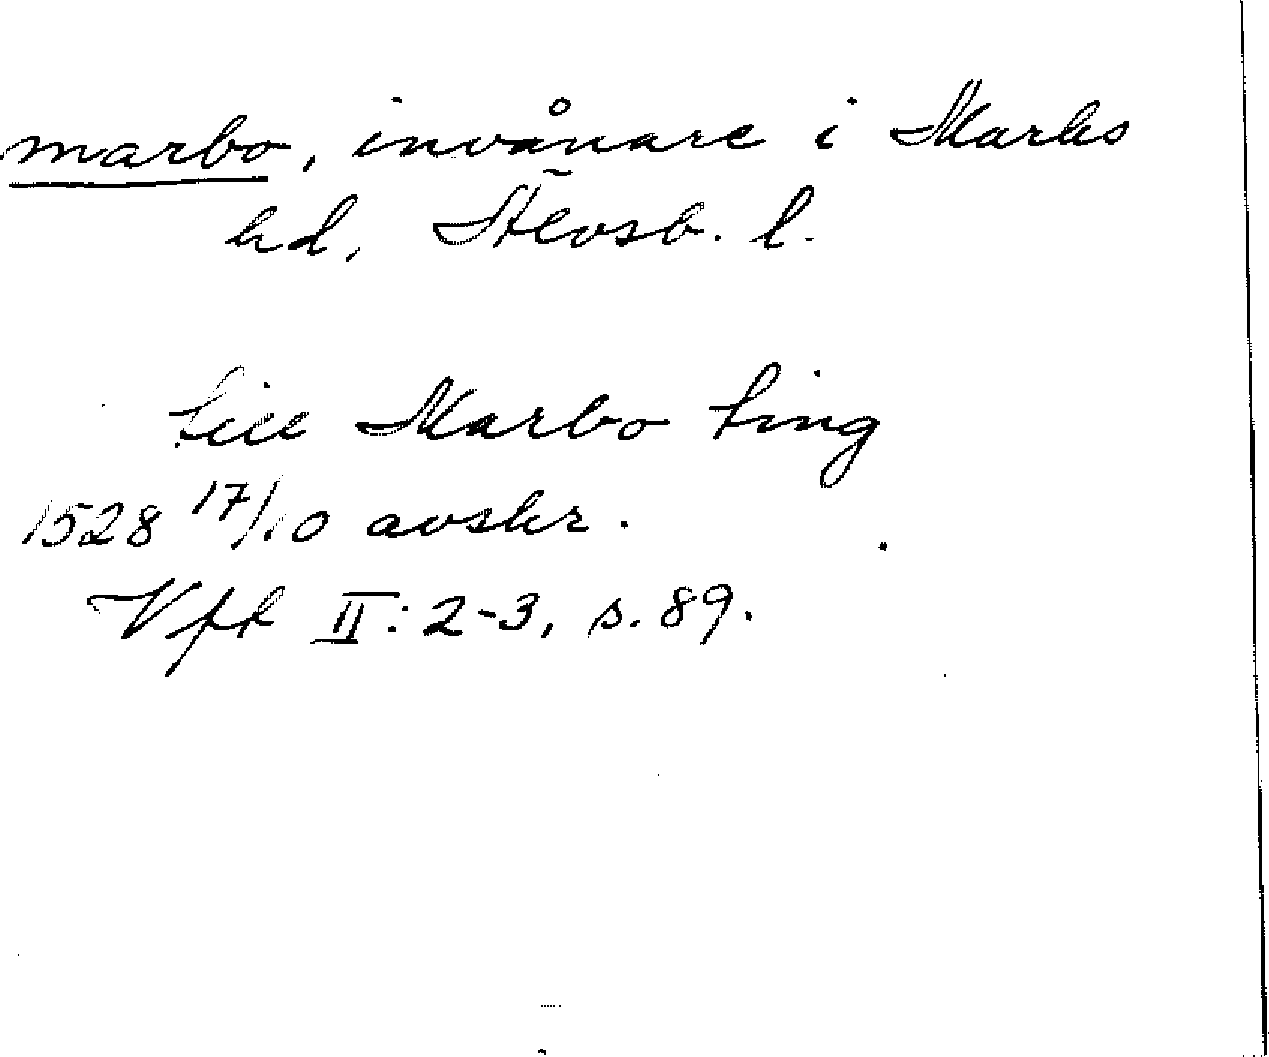 marbo, invånare i Marks
hd, Älvsb. l.
till Marbo ting
1528 17/10 avskr.
Vft II: 2-3, s. 89.